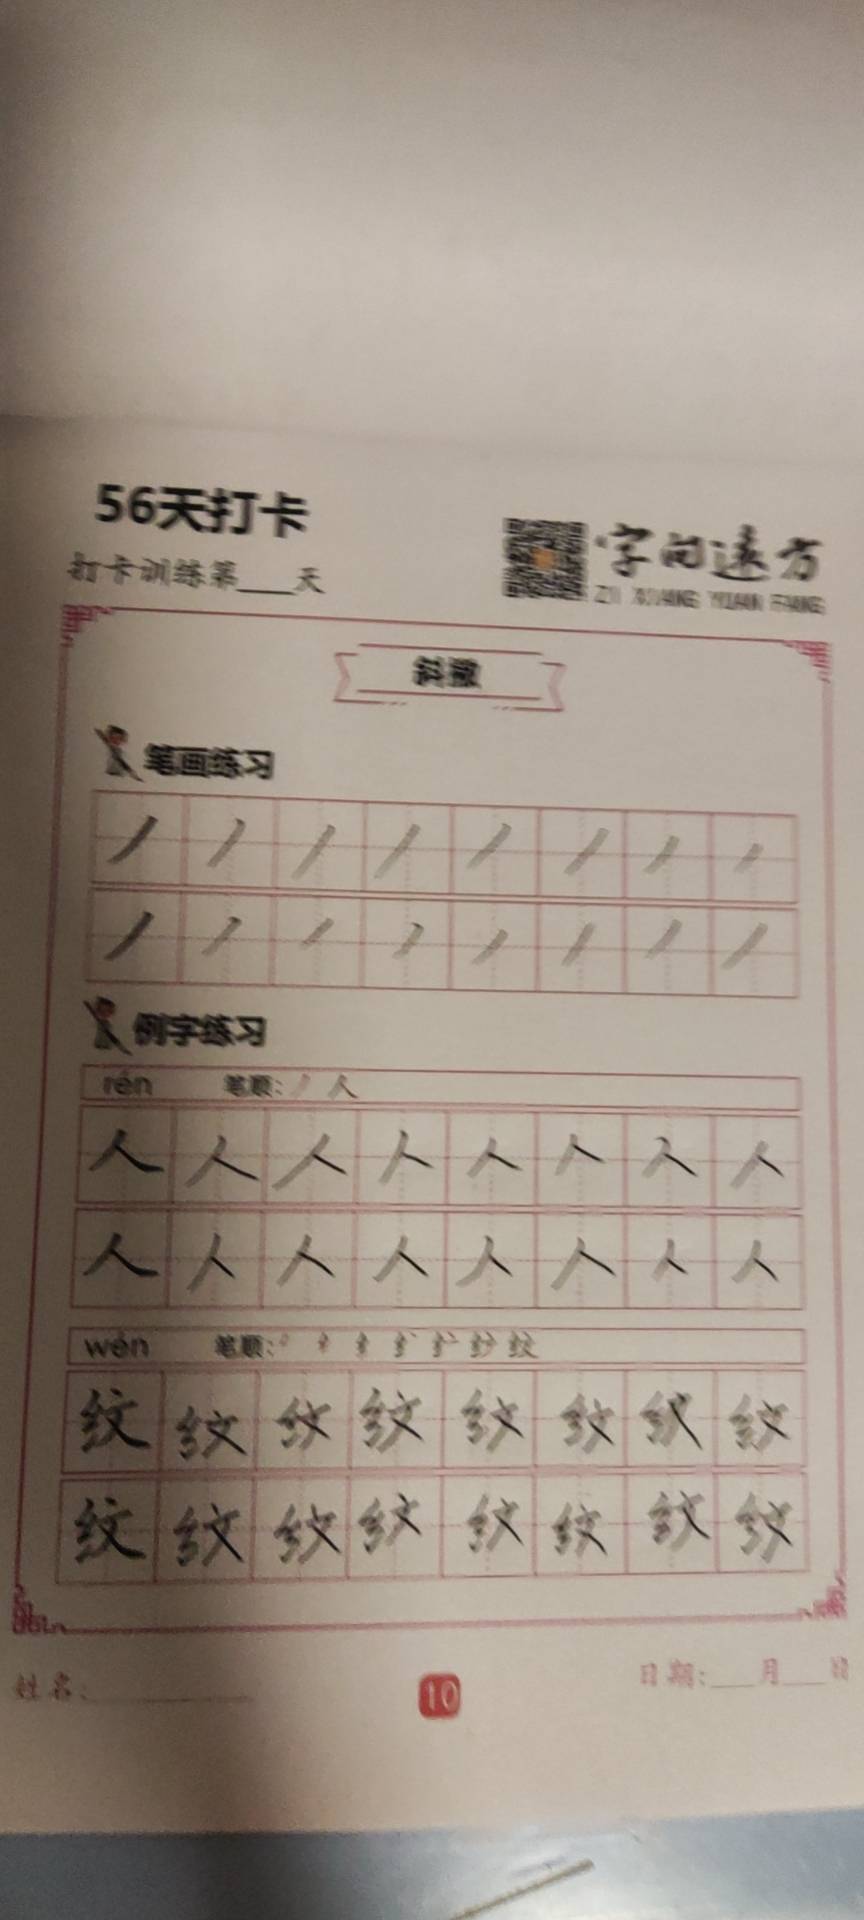 56天打卡
打卡训练第___天
字向远方
ZI XIANG YUAN FANG
斜撇
笔画练习
丿 丿 丿 丿 丿 丿 丿 丿
丿 丿 丿 丿 丿 丿 丿 丿
例字练习
rén 笔顺: 丿 人
人 人 人 人 人 人 人 人
人 人 人 人 人 人 人 人
wén 笔顺:
纹 纹 纹 纹 纹 纹 纹 纹
纹 纹 纹 纹 纹 纹 纹 纹
姓名:___________
10
日期:___月___日